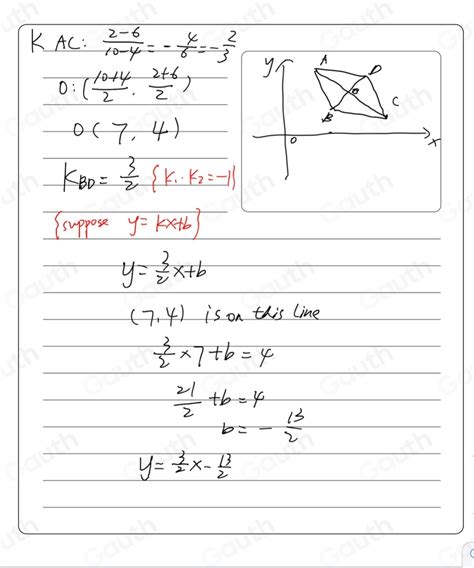 K AC: (2-6)/(10-4) = -4/6 = -2/3
O: ((10+4)/2, (2+6)/2)
O (7, 4)
K_BD = 3/2 {K₁·K₂=-1}
{suppose y=kx+b}
y = 3/2 x+b
(7,4) is on this line
3/2 × 7 + b = 4
21/2 + b = 4
b = - 13/2
y = 3/2 x - 13/2
y
A
D
O
B
C
O
x
Gauth